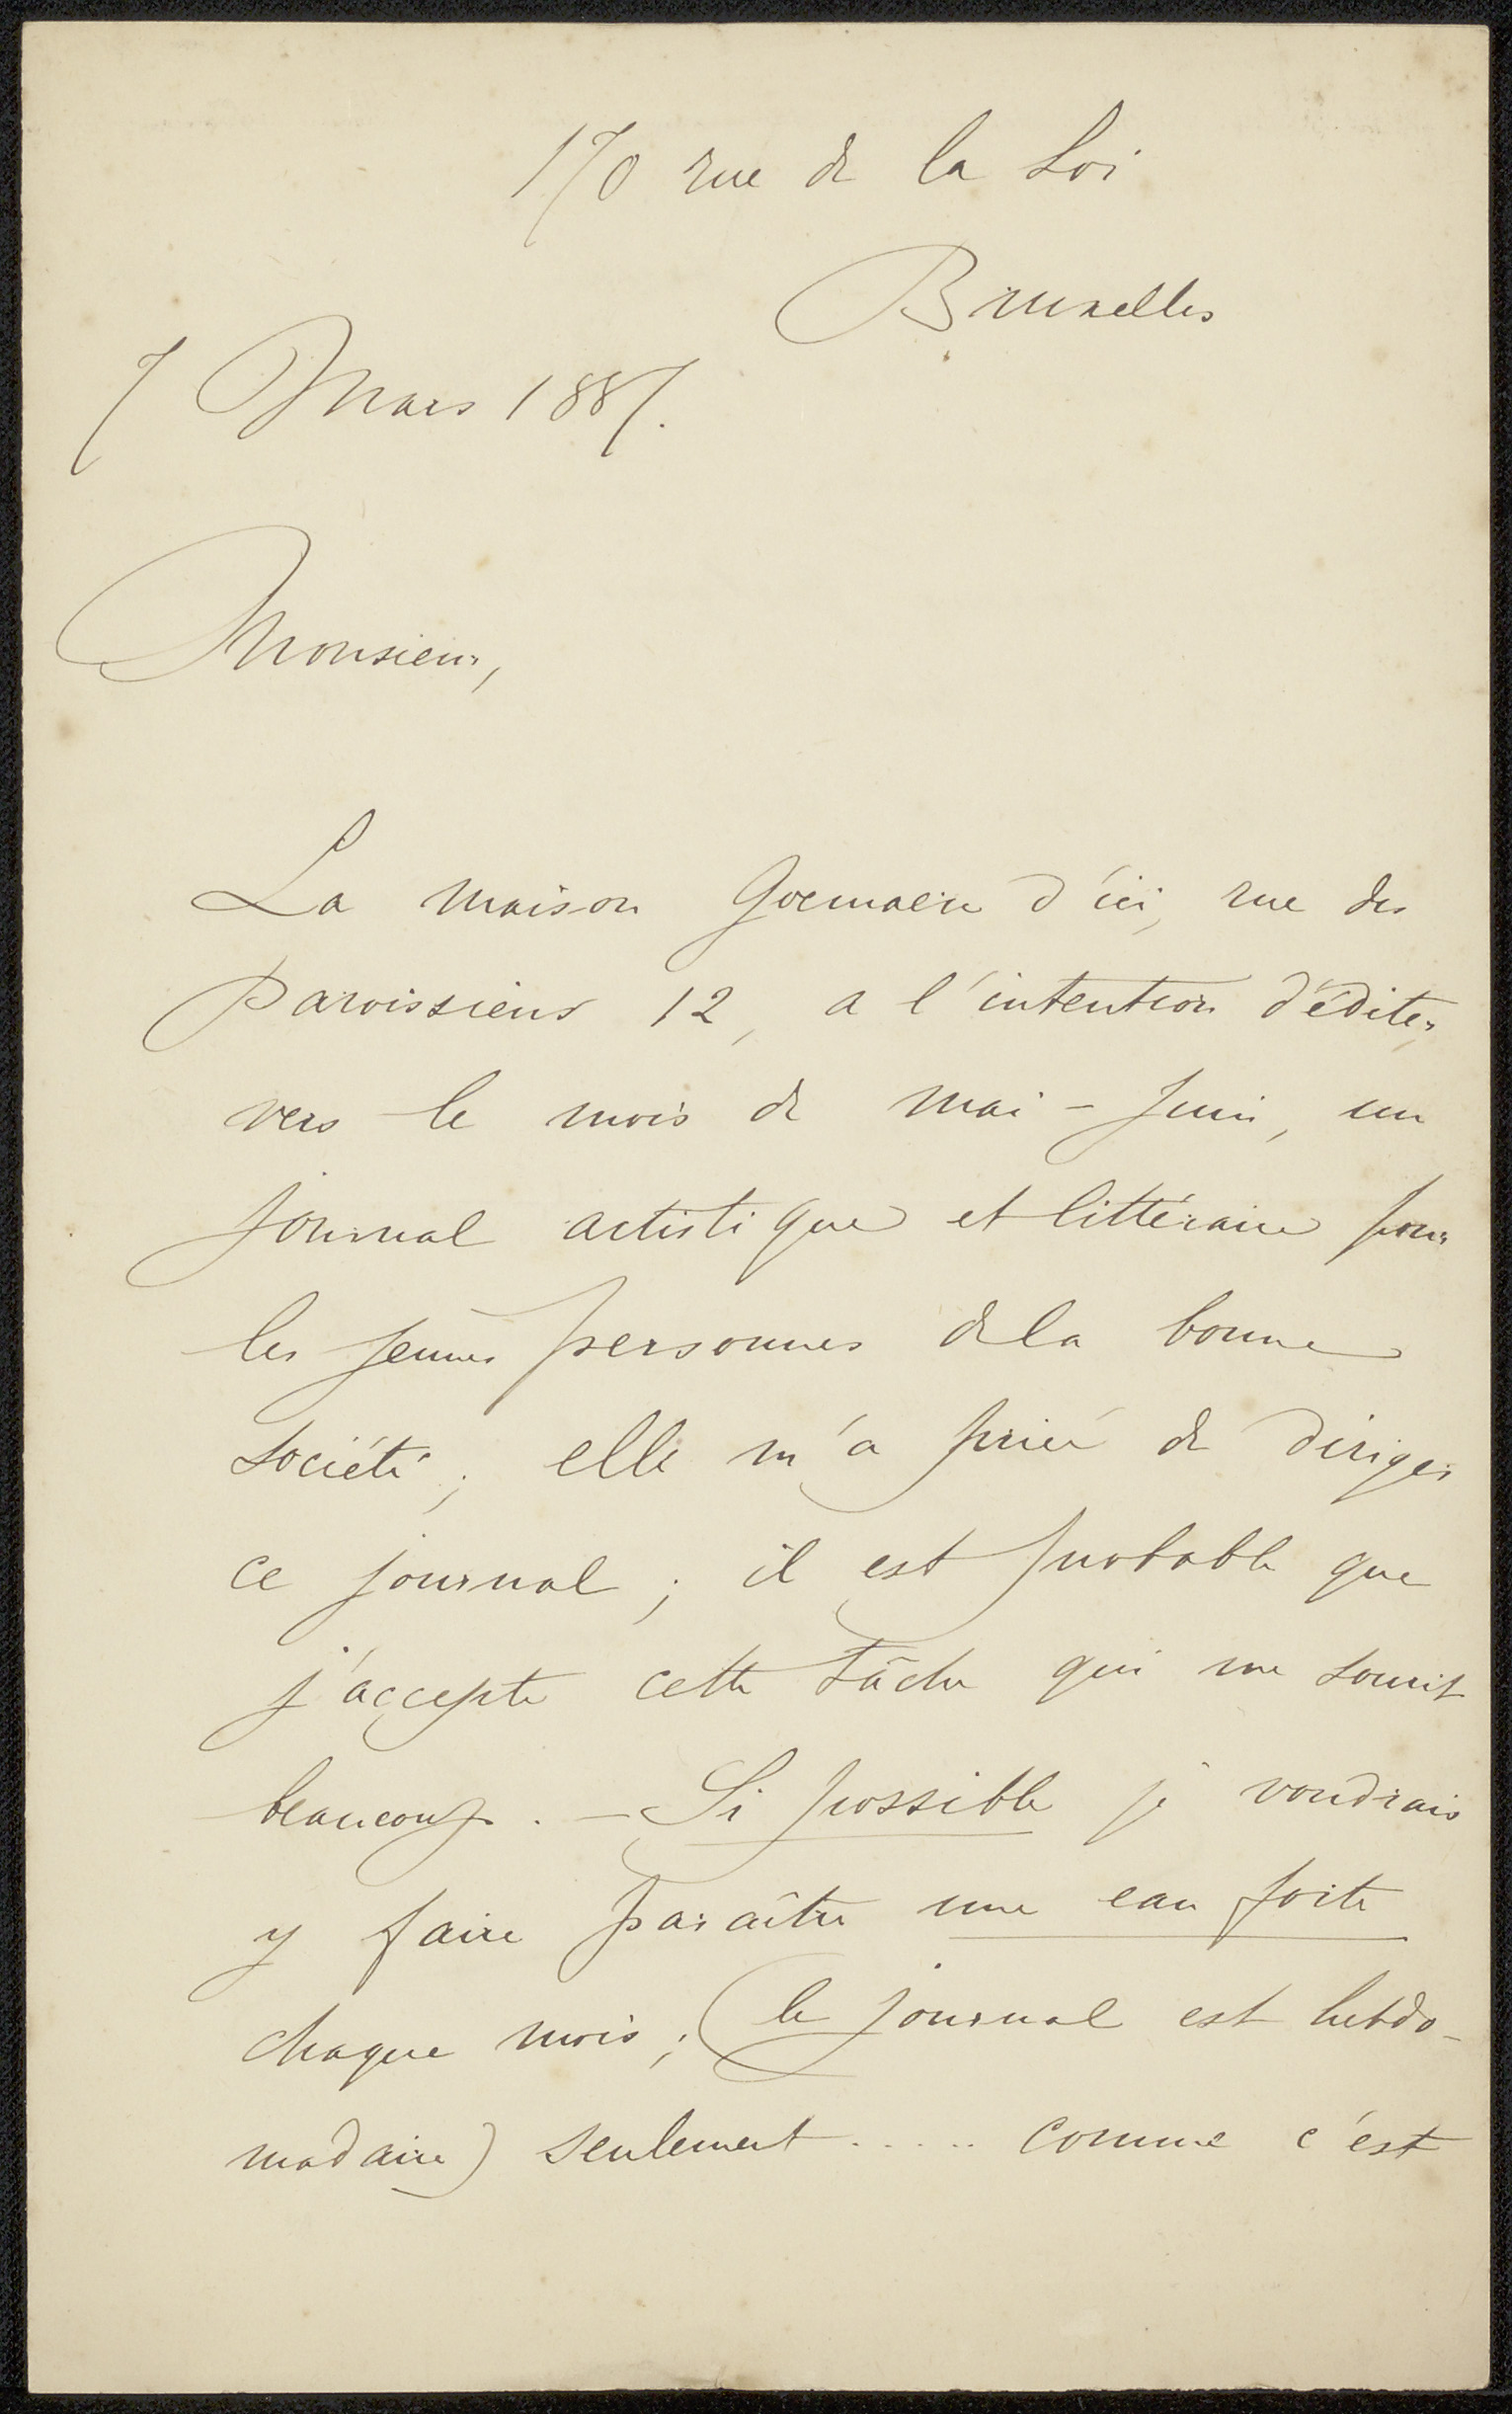 170 rue de la Loi
Bruxelles
7 Mars 1887.
Monsieur,
La maison Goemaere d'ici, rue des
Paroissiens 12, a l'intention d'éditer,
vers le mois de mai - Juin, un
journal artistique et littéraire pour
les jeunes personnes de la bonne
société; elle m'a prié de diriger
ce journal; il est probable que
j'accepte cette tâche qui me sourit
beaucoup. - Si possible je voudrais
y faire paraître une eau forte
chaque mois; (le journal est hebdo-
madaire) seulement ..... comme c'est